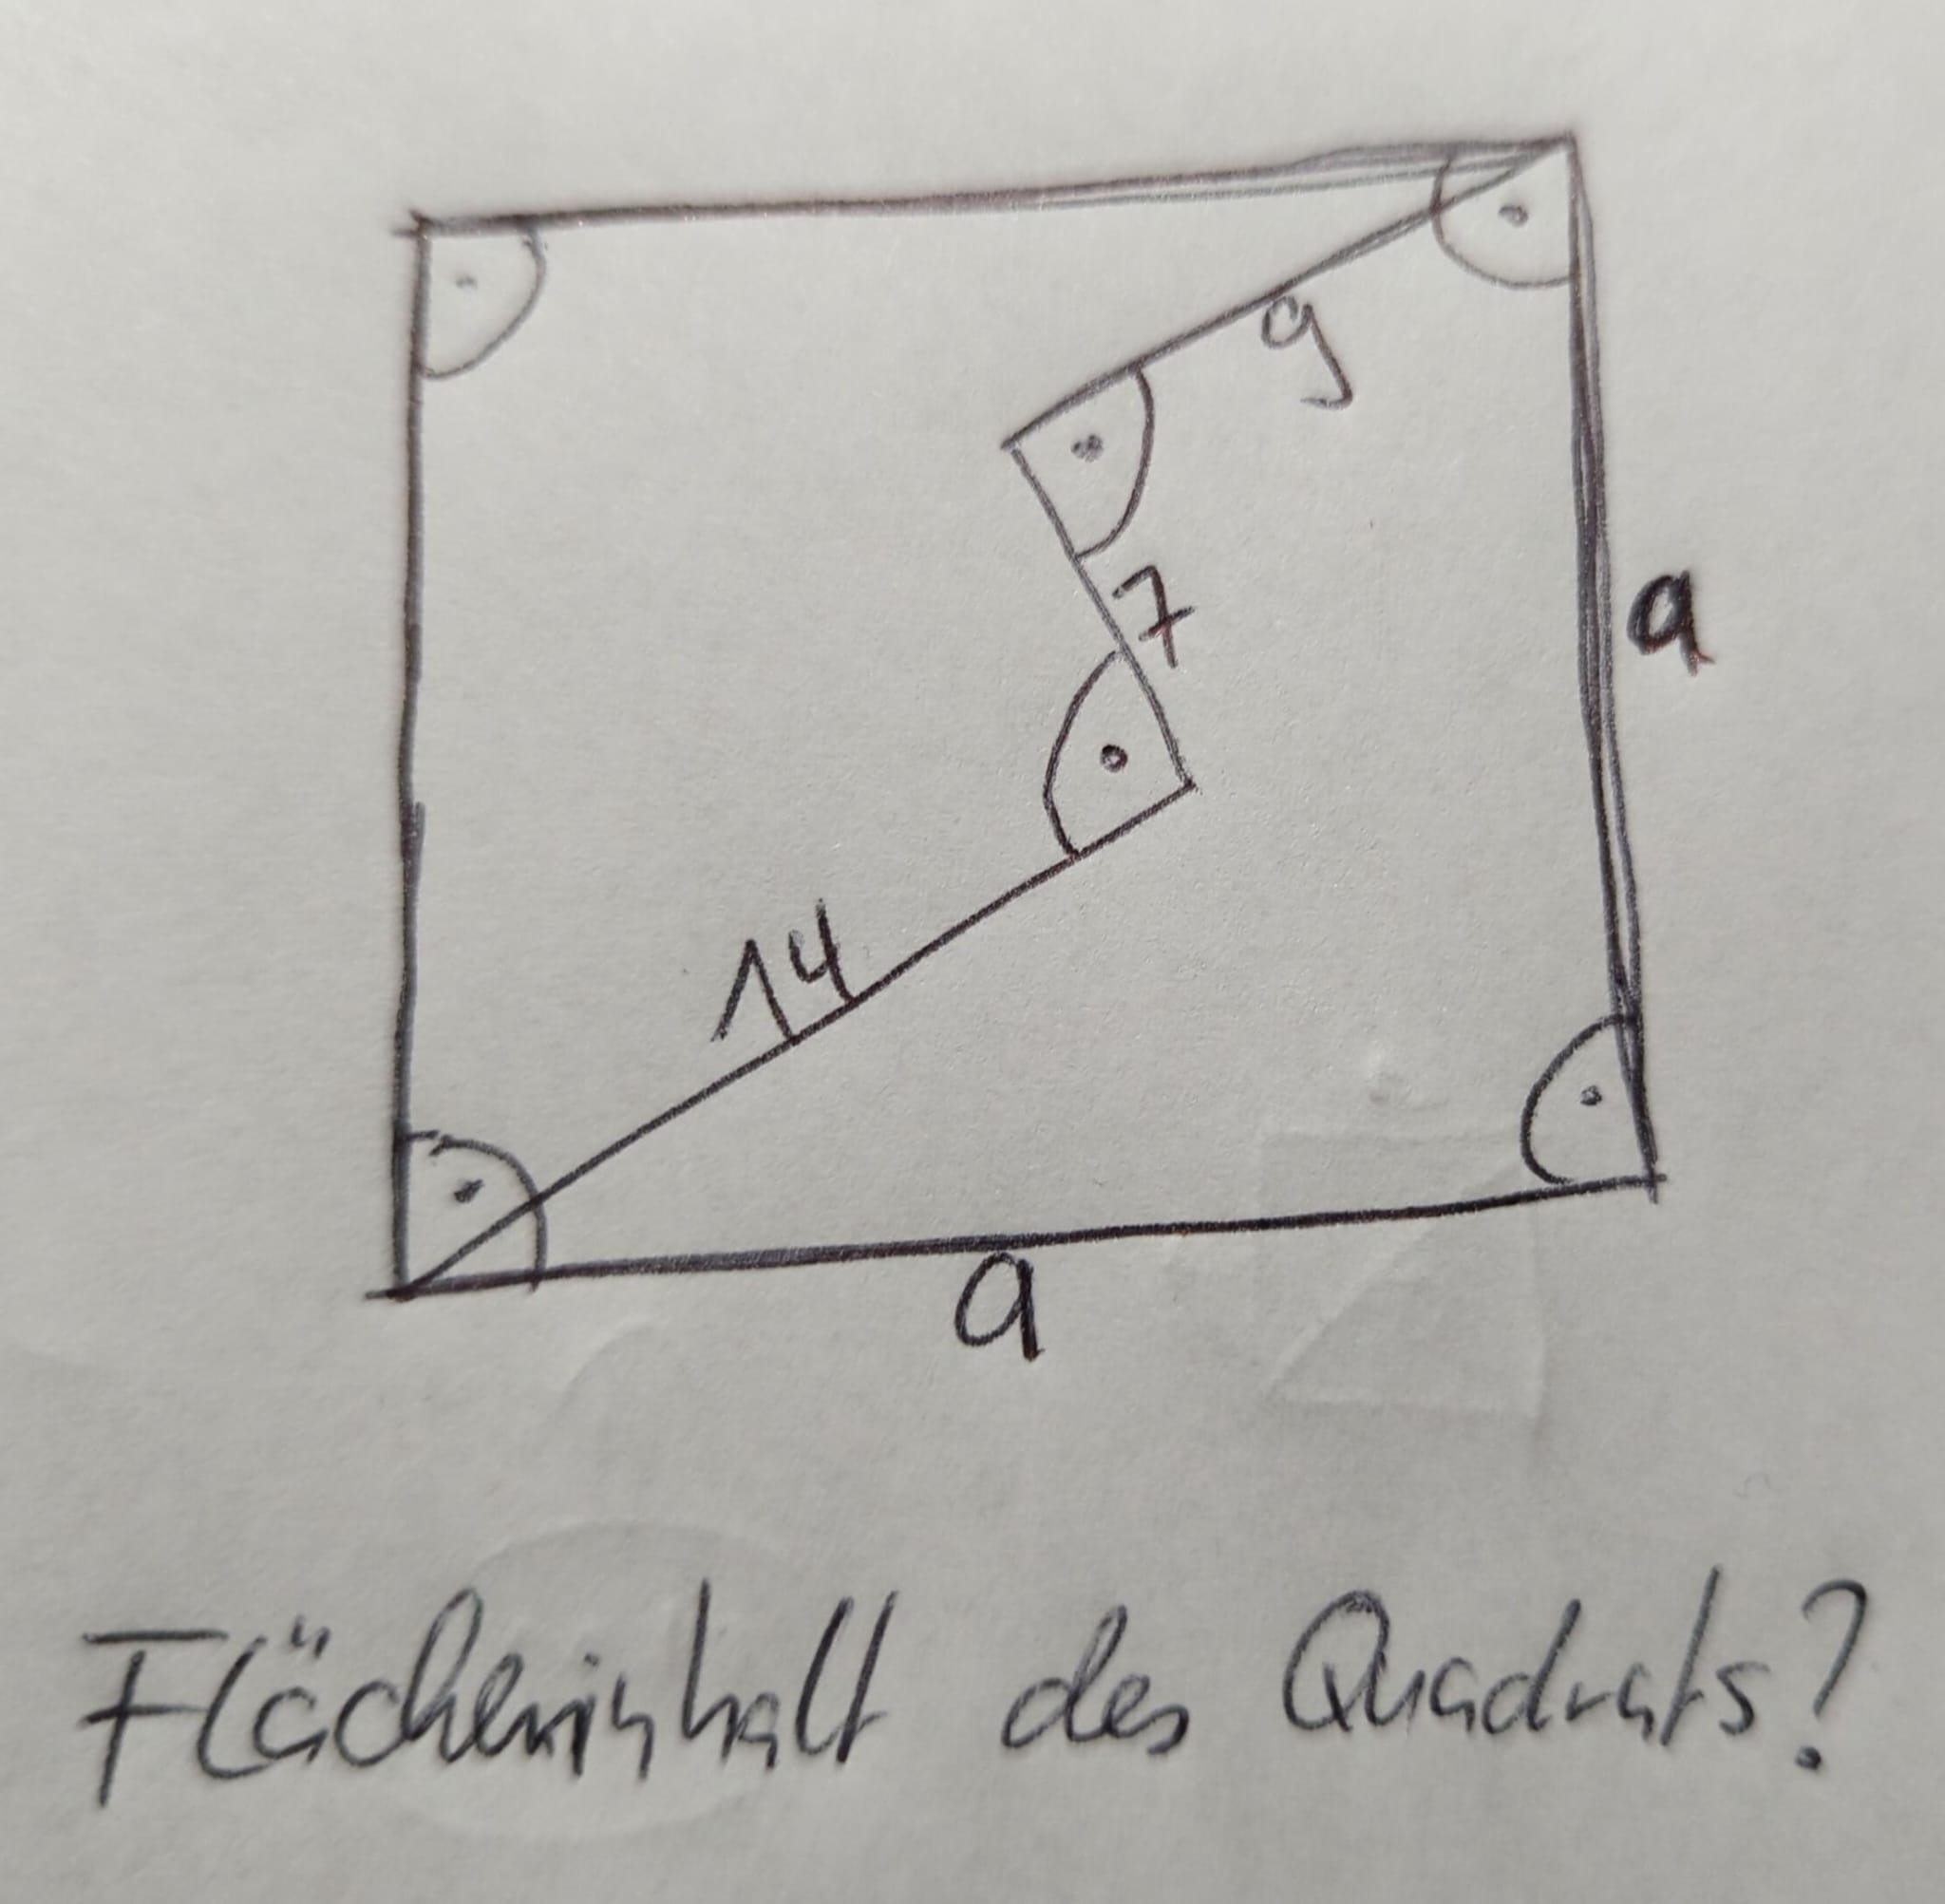 9
7
a
14
a
Flächeninhalt des Quadrats?